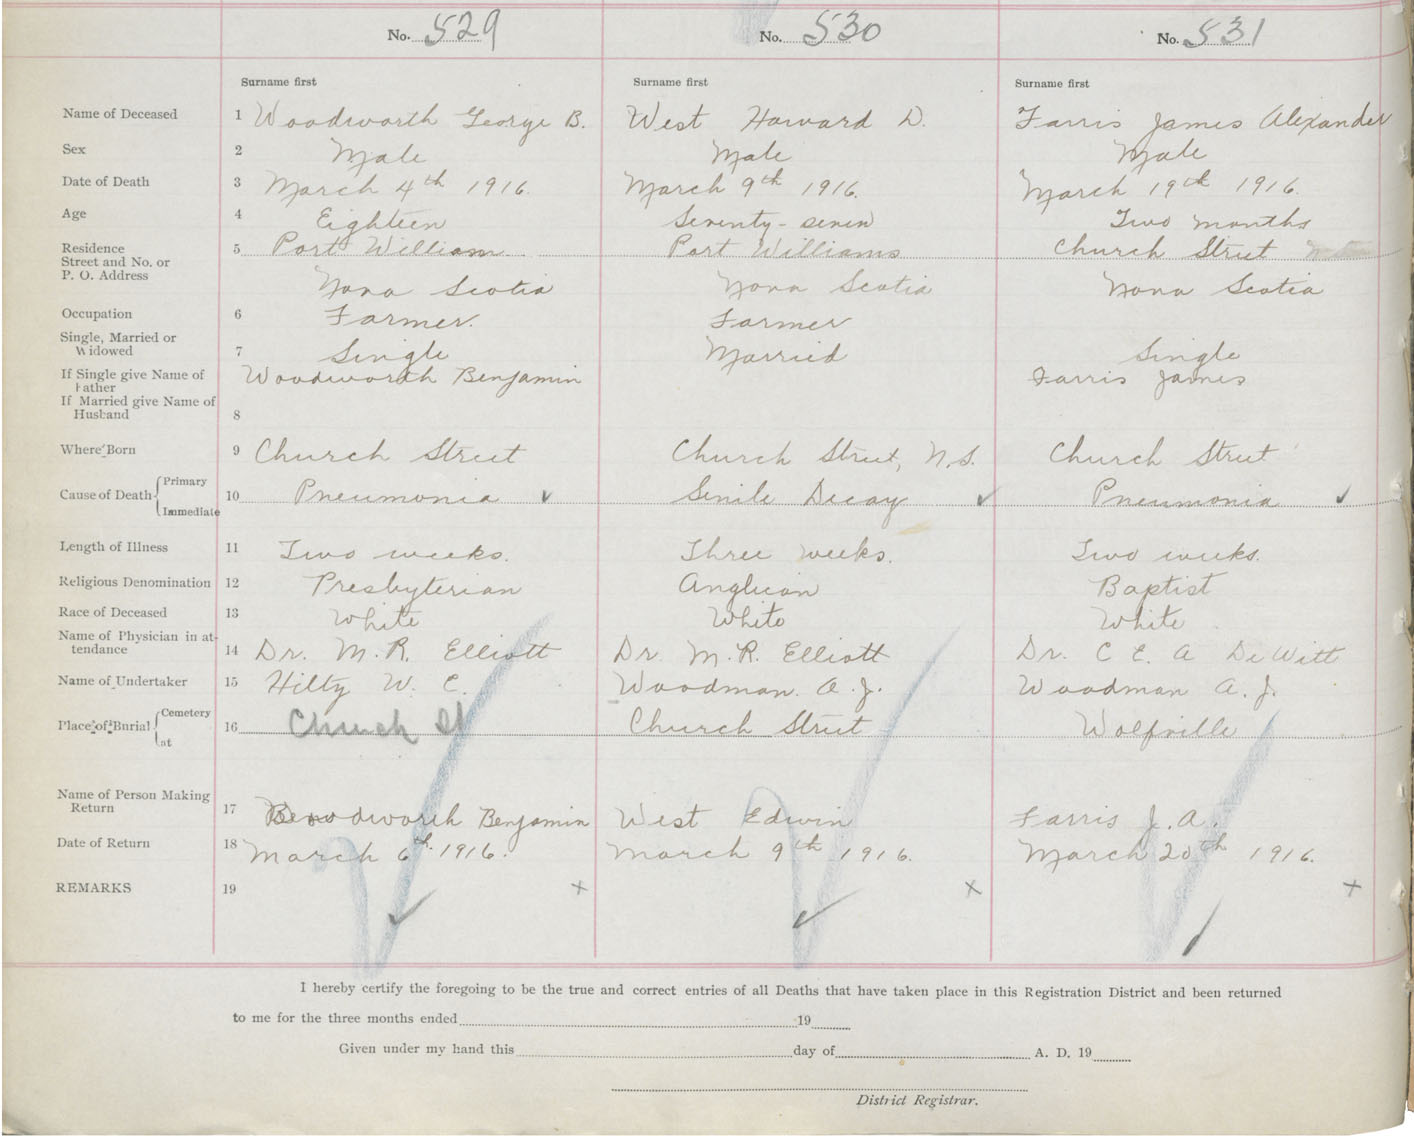 No. 529 No. 530 No. 531
Surname first Surname first Surname first
Name of Deceased 1 Woodworth George B. West Howard D. Farris James Alexander
Sex 2 Male Male Male
Date of Death 3 March 4th 1916. March 9th 1916. March 19th 1916.
Age 4 Eighteen Seventy-seven Two months
Residence 5 Port William Port Williams Church Street
Street and No. or
P. O. Address Nova Scotia Nova Scotia Nova Scotia
Occupation 6 Farmer. Farmer
Single, Married or
Widowed 7 Single Married Single
If Single give Name of Woodworth Benjamin Farris James
Father
If Married give Name of
Husband 8
Where Born 9 Church Street Church Street, N.S. Church Street
Cause of Death Primary
10 Pneumonia ✓ Senile Decay ✓ Pneumonia ✓
Immediate
Length of Illness 11 Two weeks. Three weeks. Two weeks.
Religious Denomination 12 Presbyterian Anglican Baptist
Race of Deceased 13 White White White
Name of Physician in at-
tendance 14 Dr. M. R. Elliott Dr. M. R. Elliott Dr. C E. A DeWitt
Name of Undertaker 15 Hilty W. C. Woodman. A. J. Woodman A. J.
Place of Burial Cemetery
16 Church St Church Street Wolfville
at
Name of Person Making
Return 17 Woodworth Benjamin West Edwin Farris J. A.
Date of Return 18 March 6th 1916. March 9th 1916. March 20th 1916.
REMARKS 19 x x x
✓ ✓
I hereby certify the foregoing to be the true and correct entries of all Deaths that have taken place in this Registration District and been returned
to me for the three months ended 19
Given under my hand this day of A. D. 19
District Registrar.